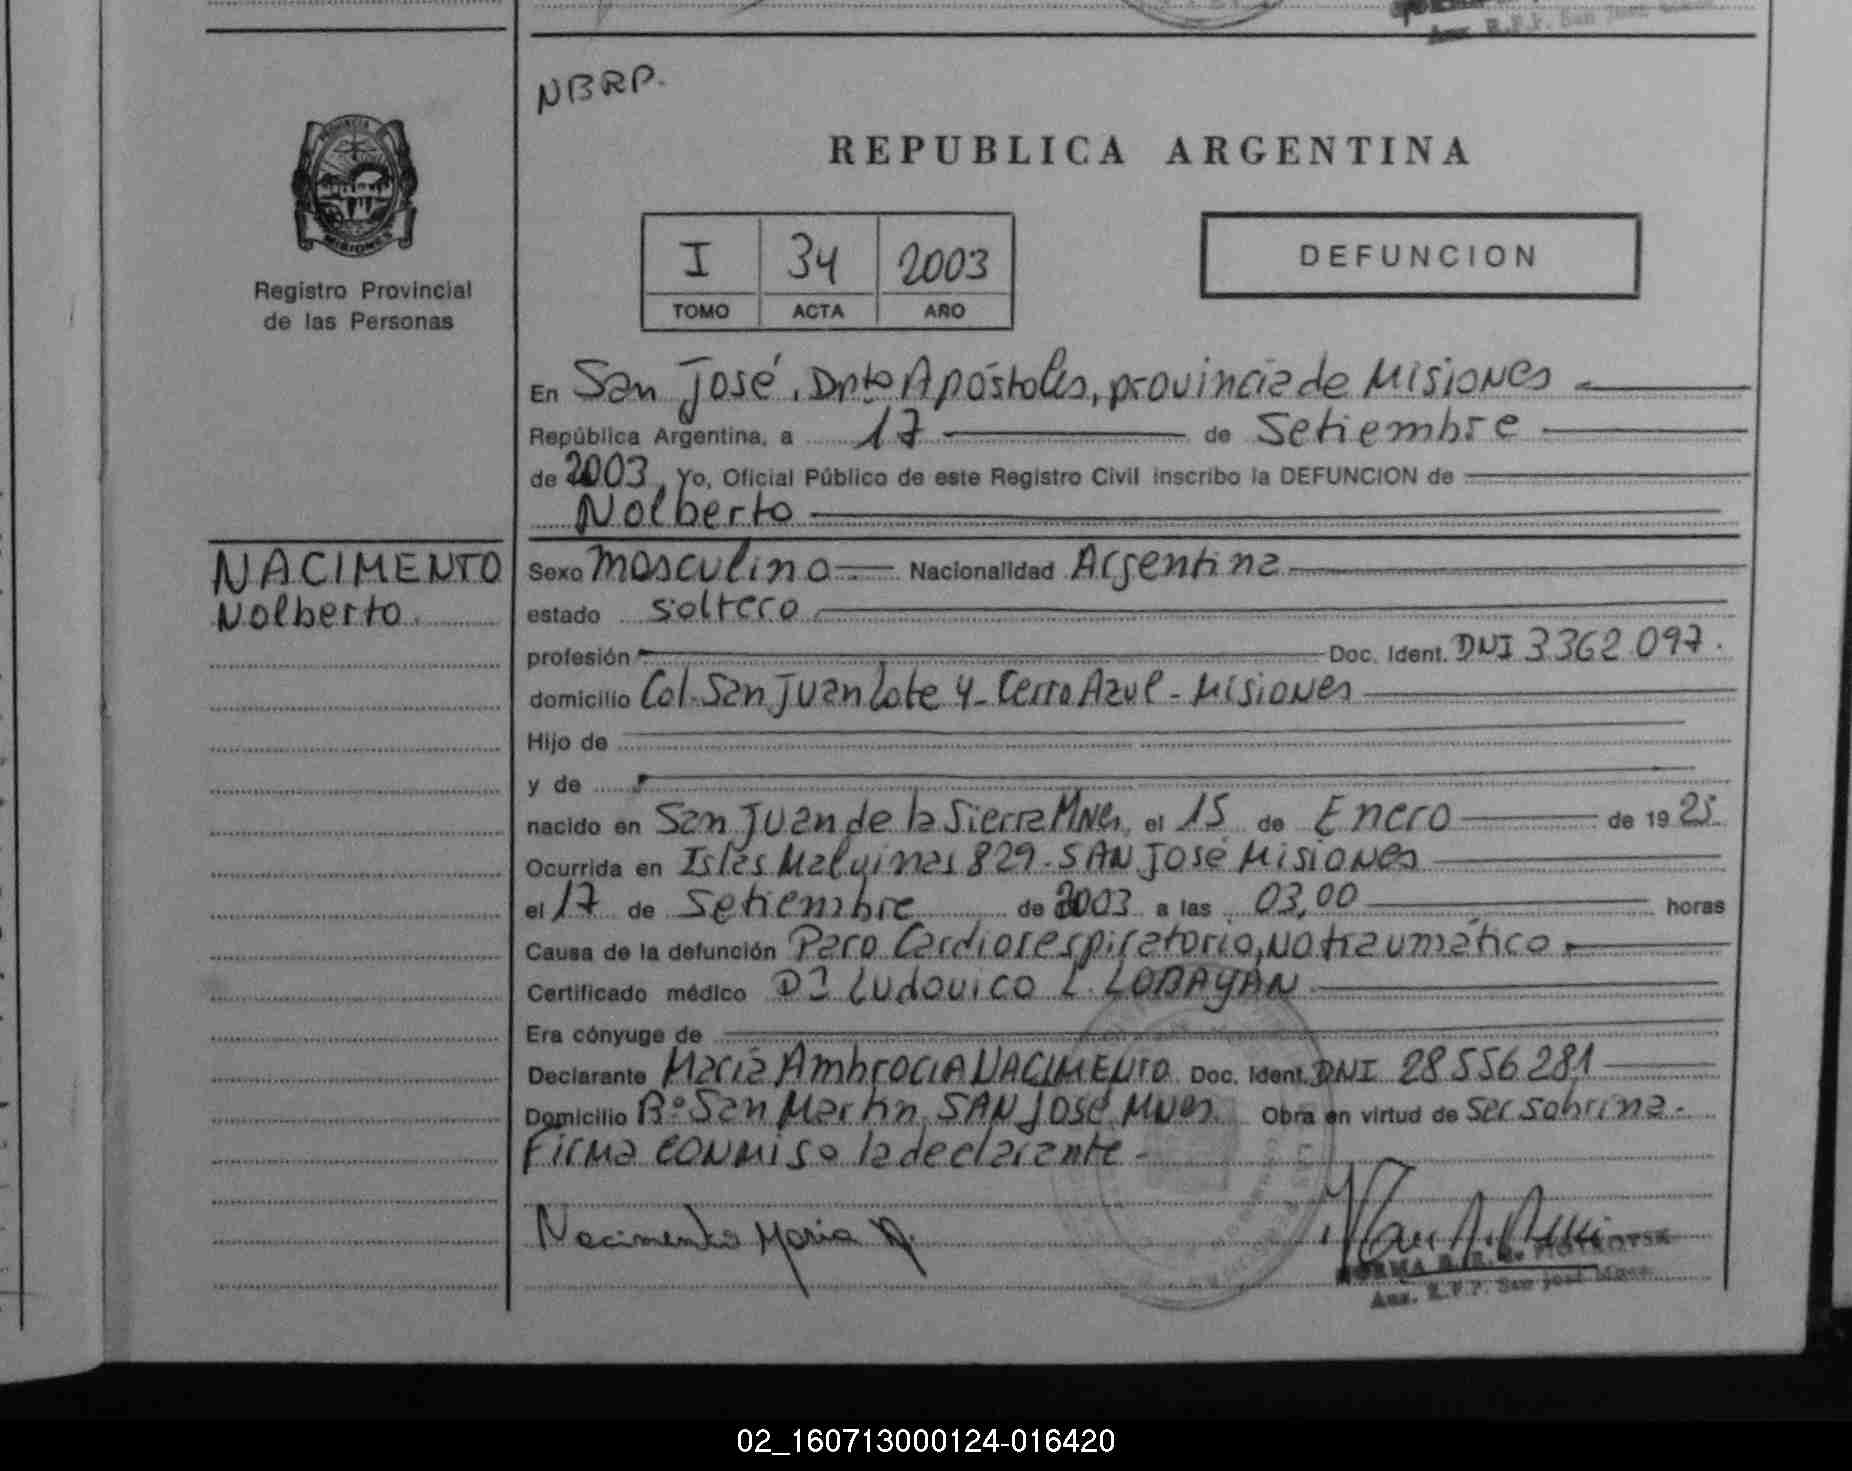 NBRP.
REPUBLICA ARGENTINA
PROVINCIA DE
MISIONES
Registro Provincial
de las Personas
I 34 2003
TOMO ACTA AÑO
DEFUNCION
En San José, Dpto Apóstoles, provincia de Misiones
República Argentina, a 17 de Setiembre
de 2003, Yo, Oficial Público de este Registro Civil inscribo la DEFUNCION de
Nolberto
NACIMENTO
Nolberto.
Sexo masculino Nacionalidad Argentina
estado soltero
profesión Doc. Ident. DNI 3362.097.
domicilio Col. San Juan Lote 4- Cerro Azul - Misiones
Hijo de
y de
nacido en San Juan de la Sierra Mnes, el 15 de Enero de 1925
Ocurrida en Islas Malvinas 829. SAN José Misiones
el 17 de Setiembre de 2003 a las 03,00 horas
Causa de la defunción Paro Cardiorespiratorio, no traumático
Certificado médico Dr Ludovico L. LOBAYAN
Era cónyuge de
Declarante María Ambrocia NACIMENTO Doc. Ident. DNI 28556281
Domicilio Bº San Martin. SAN José Mnes. Obra en virtud de ser sobrina.
Firma conmigo la declarante -
Nacimento Maria A.
NORMA
Aux. R.P.P. San José Mnes.
02_160713000124-016420